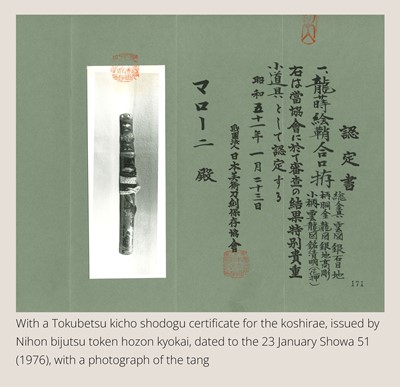 認定書
一、龍蒔絵鞘合口拵
総金具 雲図 銀石目地
柄胴金 龍図 銀地高彫
小柄 雲龍図 銘清明(花押)
右は當協會に於て審査の結果特別貴重
小道具として認定する
昭和五十一年一月二十三日
財團法人日本美術刀剣保存協會
マローニ殿
171
With a Tokubetsu kicho shodogu certificate for the koshirae, issued by
Nihon bijutsu token hozon kyokai, dated to the 23 January Showa 51
(1976), with a photograph of the tang